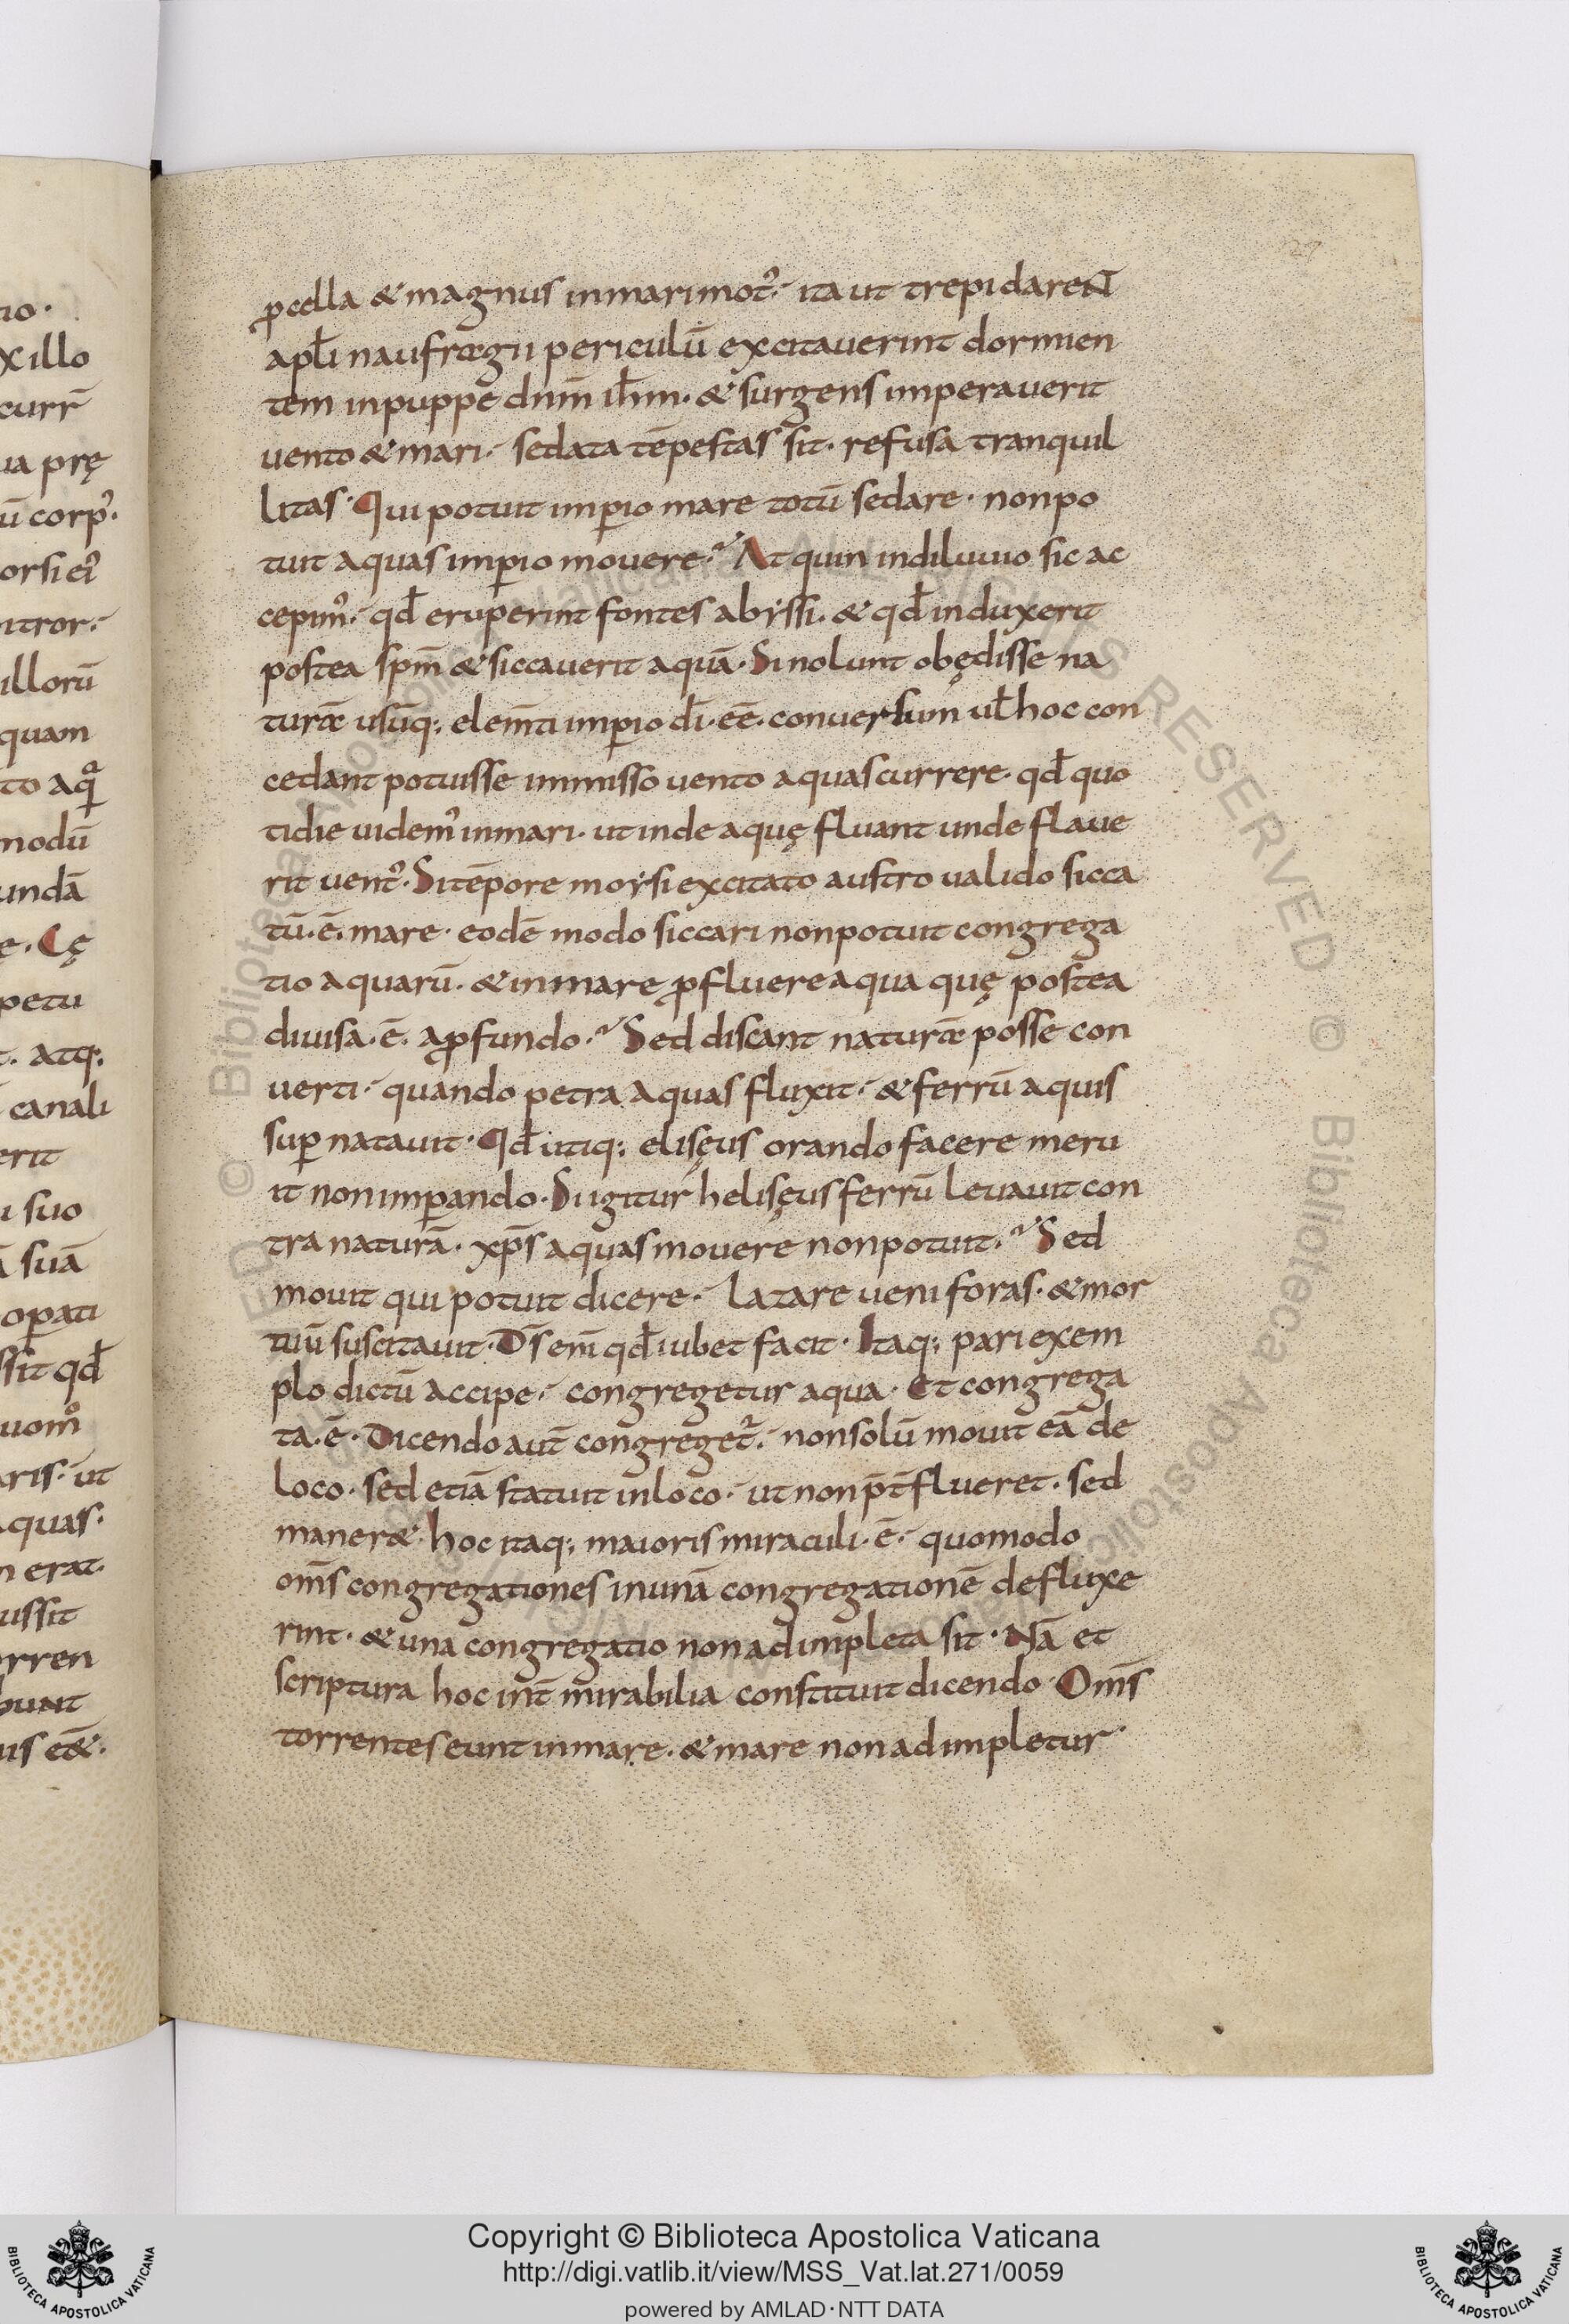 27
ꝓcella & magnus inmarimotꝰ. ita ut trepidareNT̄
apl̄i naufragii periculū excitauerint dormien
tem inpuppē dnm̄ ih̄m. & surgens imperauerit
uento & mari. sedata tēpestas sit. refusa tranquil
litas. Qui potuit imꝑio mare totū sedare. nonpo
tuit aquas imꝑio mouere. At quin indiluuio sic ac
cepimꝰ. qđ eruperint fontes abyssi. & qđ induxerit
postea spm̄ & siccauerit aquā. Si nolunt obędisse na
turæ usūq; elem̄ti imꝑio dī. eē. conuersum ul̄ hoc con
cedant potuisse immisso uento aquas currere. qđ quo
tidie uidemꝰ inmari. ut inde aquę fluant unde flaue
rit uentꝰ. Si tēpore moysi excitato austro ualido sicca
tū. ē. mare. eodē modo siccari nonpotuit congrega
tio aquarū. & inmare ꝓfluere aqua quę postea
diuisa. ē. aꝓfundo. Sed discant naturæ posse con
uerti. quando petra aquas fluxit. & ferrū aquis
suꝑ natauit. Qđ utiq; elisęus orando facere meru
it non imꝑando. Si igitur helisęus ferrū leuauit con
tra naturā. xp̄s aquas mouere nonpotuit. Sed
mouit qui potuit dicere. lazare ueni foras. & mor
tuū suscitauit. D̄s em̄ qđ iubet facit. Itaq; pari exem
plo dictū accipe. congregetur aqua. Et congrega
ta. ē. Dicendo aut̄ congregetꝰ. nonsolū mouit eā de
loco. sed etiā statuit inloco. ut non p̄t̄flueret. sed
maner&. hoc itaq; maioris miraculi. ē. quomodo
om̄s congregationes inunā congregationē defluxe
rint. & una congregatio non adimpleta sit. Nā et
scriptura hoc int̄ mirabilia constituit dicendo. Om̄s
torrentes eunt inmare. & mare non adimpletur.
Copyright © Biblioteca Apostolica Vaticana
http://digi.vatlib.it/view/MSS_Vat.lat.271/0059
powered by AMLAD·NTT DATA
BIBLIOTECA APOSTOLICA VATICANA
BIBLIOTECA APOSTOLICA VATICANA